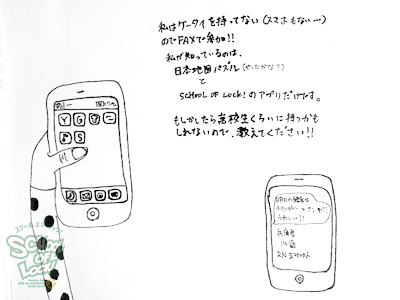 私はケータイを持ってない(スマホもない…)
のでFAXで参加!!
私が知っているのは、
日本地図パズル(やったかな?)
と
SCHOOL OF LOCK!のアプリだけです。
もしかしたら高校生くらいに持つかも
しれないので、教えてください!!
Y G
S
うれしい!!
兵庫県
14歳
RN
スクールオブロック
SCHOOL
OF
LOCK!